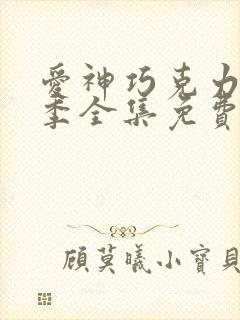 愛神巧克力
季全集免費
顧莫曦小寶貝